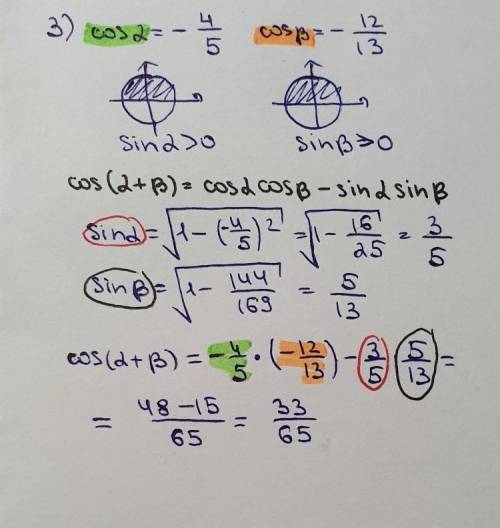 3) cos α = - 4/5 cos β = - 12/13
sin α > 0 sin β > 0
cos(α+β) = cos α cos β - sin α sin β
sin α = √(1-(-4/5)²) = √(1-16/25) = 3/5
sin β = √(1-144/169) = 5/13
cos(α+β) = -4/5 · (-12/13) - 3/5 · 5/13 =
= (48-15)/65 = 33/65